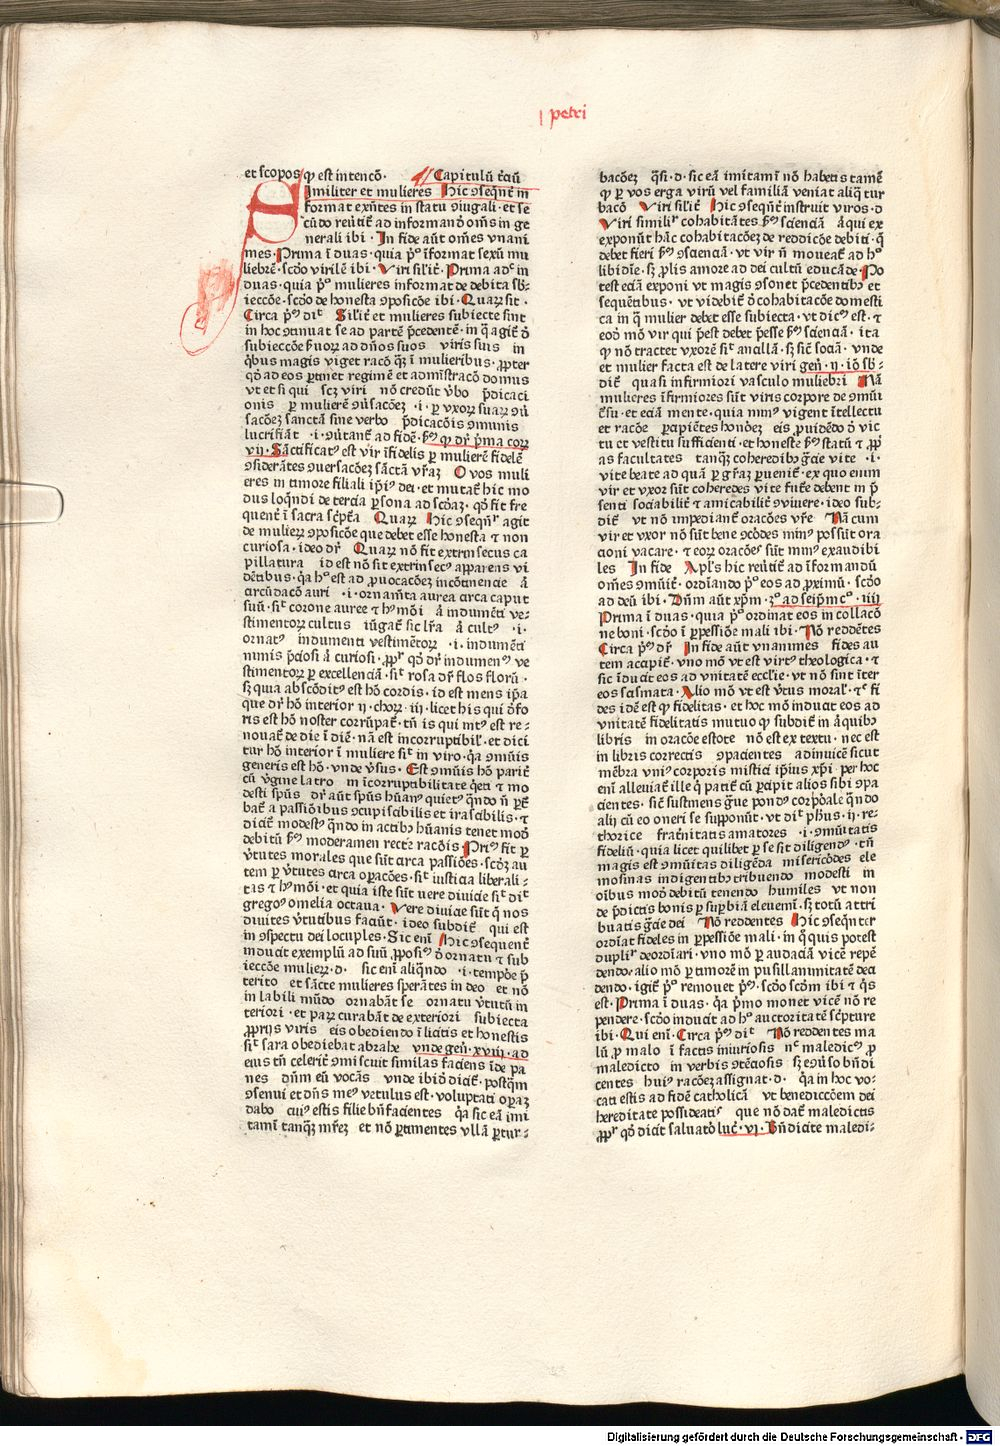 I petri
et scopos ꝙ est intencõ · Capitulũ t̃ciũ
Similiter et mulieres Hic ↄseqn̄t̃ in
format exñtes in statu ↄiugali · et se
cũdo reũtit̃ ad informandõ om̃s in ge
nerali ibi · In fide aũt om̃es vnani
mes · Prima ĩ duas · quia pͦ ĩformat sexũ mu
liebrẽ · scd̃o virilẽ ibi · Viri sil̃it̃ · Prima adͨ in
duas · quia pͦ mulieres informat de debita sb̃
ieccõe · scd̃o de honesta ↄposicõe ibi · Quaꝝ sit ·
Circa pͫ dit̃ Sil̃it̃ et mulieres subiecte sint
in hoc ↄtinuat se ad partẽ p̃cedentẽ · in q̃ agit̃ õ
subieccõe s̃uoꝝ ad dños suos viris suis in
qͥbus magis viget racõ qꝫ ĩ mulieribus · ꝓpter
qd̃ ad eos ꝑtinet regimẽ et adm̃istracõ domus
vt et si qui scꝫ viri nõ credũt v̾bo p̃dicaci
onis ꝑ mulierẽ ↄũsacõeꝫ · i · ꝑ vxoꝝ suaꝝ ↄũ
sacõeꝫ sanctã sine verbo p̃dicacõis ↄmunis
lucrifiãt · i · ↄũtant̃ ad fidẽ · ẜm ꝙ dr̃ pͥma coꝝ
vij · Sãctificatꝰ est vir ĩfidelis ꝑ mulierẽ fidelẽ
ↄsiderãtes ↄuersacõeꝫ sãctã vr̃aꝫ O vos muli
eres in timore filiali ip̃iꝰ dei · et mutat̃ hic mo
dus loqñdi de tercia ꝑsona ad scd̃aꝫ · qd̃ fit fre
quent̃ ĩ sacra sc̃pt̃a Quaꝝ Hic ↄseqñr agit
de mulieꝝ ↄposicõe que debet esse honesta ⁊ non
curiosa · ideo dr̃ Quaꝝ nõ fit extrinsecus ca
pillatura id est nõ sit extrinsecꝰ apparens vi
dẽtibus · q̃a hͦ est ad ꝓuocacõeꝫ incõtinencie Å
arcũdacõ auri · i · ornam̃ta aurea circa caput
suũ · sit̃ corone auree ⁊ hꝰmõi A indumẽti ve-
stimentoꝝ cultus iũgat̃ sic lr̃a A cultꝰ · i ·
ornatꝰ indumenti vestimẽtoꝝ · i · indumẽti
nimis p̃ciosi A curiosi · ꝓpͬ qd̃ dr̃ indumenͭ ve
stimentoꝝ ꝑ excellenciã · sit̃ rosa dr̃ flos florũ ·
sꝫ quia abscõditꝰ est hõ cordis · id est mens ip̃a
que dr̃ hõ interior ij · choꝝ · iij · licet his qui õfo
ris est hõ noster corrũpat̃ · tñ is qui intꝰ est re-
nouat̃ de die ĩ diẽ · nã est incorruptibil̃ · et dici
tur hõ interior ĩ muliere sit̃ in viro · q̃a ↄmũis
generis est hõ · vnde v̾sus · Est ↄmũis hõ parit̃
cũ v̾gine latro in ĩcorruptibilitate q̃eti ⁊ mo
desti spũs dr̃ aũt spũs hũanꝰ quietꝰ qñdo ñ ꝑt̃
bat̃ a passiõibus ↄcupiscibilis et irascibilis · ⁊
dicit̃ modestꝰ qñdo in actibꝰ hũanis tenet modũ
debitũ ẜm moderamen recte racõis · Priꝰ fit ꝑ
v̾tutes morales que sũt circa passiões · scd̃ꝫ au
tem ꝑ v̾tutes circa oꝑacões · sit̃ iusticia liberali-
tas ⁊ hꝰmõi · et quia iste sũt vere diuicie sit̃ dit̃
gregoꝰ omelia octaua · Vere diuicie sũt q̃ nos
diuites v̾tutibus faciũt · ideo subdit̃ qui est
in ↄspectu dei locuples · Sic eni᷑ Hic ↄsequent̃
inducit exemplũ ad suũ ꝓpositꝰ õ ornatu ⁊ sub
ieccõe mulieꝝ · d · sic eni᷑ aliqñdo · i · tempõe p̃
terito et sãcte mulieres sperãtes in deo et nõ
in labili mũdo ornabãt se ornatu v̾tutũ in
teriori · et paꝝ curabãt de exteriori subiecta
ꝓprijs viris eis obediendo ĩ licitis et honestis
sit̃ sara obediebat abrahe vnde gen̾ · xviij · ad
eius tñ celerit̃ ↄmiscuit similas faciens ĩde pa
nes dñm eũ vocãs vnde ibid̃ dicit̃ · postq̃m
ↄsenui et dñs meꝰ vetulus est · voluptati operaꝫ
dabo cuiꝰ estis filie bñfacientes q̃a sic eã imi
tamĩ tanqꝫ mr̃eꝫ et nõ ꝑtimentes vllã ꝑtur-
bacõeꝫ q̃si · d · sic eã imitamĩ nõ habetis tamẽ
ꝙ ꝑ vos erga virũ vel familiã veniat aliq̃ tur
bacõ Viri sil̃it̃ Hic ↄseqñt̃ instruit viros · d
Viri similiͬ cohabitãtes ẜm sciẽciã A qui ex
exponũt hãc cohabitacõeꝫ de reddicõe debiti · q̃
debet fieri ẜm ↄsciẽciã · vt vir ñ moueat̃ ad hͦ
libidĩe · sꝫ ꝓlis amore ad dei cultũ educãde · Po
test eciã exponi vt magis ↄsonet p̃cedentibꝰ et
sequẽtibus · vt videbit̃ õ cohabitacõe domesti
ca in q̃ mulier debet esse subiecta · vt dicͫ est · ⁊
eod̃ mõ vir qui p̃est debet p̃esse ẜm sciẽciã · ita
ꝙ nõ tractet vxorẽ sit̃ ancillã · sꝫ sic̃ sociã · vnde
et mulier facta est de latere viri gen̾ · ij · iõ sb̃-
dit̃ quasi infirmiori vasculo muliebri Nã
mulieres ĩfirmiores sũt viris corpore de ↄmũi
c̃su · et eciã mente · quia minͫ vigent ĩtellectu
et racõe ꝑcipiẽtes honõeꝫ eis ꝓuidẽdo õ vic
tu et vestitu sufficienti · et honeste ẜm statũ ⁊ ꝓp̃
as facultates tanqꝫ coheredibꝰ gr̃cie vite · i ·
vite beate ad quã ꝑ gr̃aꝫ ꝑuenit̃ · ex quo enim
vir et vxor sũt coheredes vite fut̃e debent in p̃
senti sociabilit̃ ⁊ amicabilit̃ ↄviuere · ideo sub-
dit̃ vt nõ impediant̃ oracões vr̃e Nã cum
vir et vxor nõ sũt bene ↄcõdes minͫ possũt ora
cioni vacare · ⁊ eoꝝ oracões sũt minͫ exaudibi
les In fide Apl̃s hic reũtit̃ ad ĩformandũ
om̃es ↄmũit̃ · ordĩando pͦ eos ad ꝓximũ · scd̃o
ad deũ ibi · Dñm aũt xp̃m · zͦ ad seip̃m cͦ · iiij
Prima ĩ duas · quia pͦ ordinat eos in collacõ
ne boni · scd̃o ĩ ꝑpessiõe mali ibi · Nõ reddẽtes
Circa pͫ dr̃ In fide aũt vnanimes fides au
tem accipit̃ · vno mõ vt est virtꝰ theologica · ⁊
sic ĩducit eos ad vnitatẽ eccl̃ie · vt nõ sint ĩter
eos scismata · Alio mõ vt est v̾tus moral̃ · ⁊ͨ fi
des idẽ est ꝙ fidelitas · et hoc mõ inducit eos ad
vnitatẽ fidelitatis mutuo ꝙ subdit̃ in Aquibꝫ
libris in oracõe estote nõ est ex textu · nec est
in libris correctis ↄpacientes adinuicẽ sicut
mẽbra vniꝰ corporis mistici ip̃ius xp̃i per hoc
eni᷑ alleuiat̃ ille q̃ patit̃ cũ ꝑcipit alios sibi ↄpa
cientes · sic̃ sustinens g̃ue pondꝰ corꝑõale qñdo
alij cũ eo oneri se supponũt · vt dit̃ ph̃us · ij · re-
thorice frat̃nitatis amatores · i · ↄmũitatis
fideliũ · quia licet quilibet ꝑ se sit diligendꝰ · tñ
magis est ↄmũitas diligẽda misericõdes ele
mosinas indigentibꝰ tribuendo modesti in
oĩbus modũ debitũ tenendo humiles vt non
de p̃dictis bonis ꝑ suꝑbiã eleuemĩ · sꝫ totũ attri
buatis gr̃cie dei Nõ reddentes Hic ↄseqñter
ordĩat fideles in ꝑpessiõe mali · in q̃ quis potest
dupliͬ deordĩari · vno mõ ꝑ audaciã vicẽ repẽ
dendo · alio mõ ꝑ timorem in pusillanimitatẽ deci
dendo · igit̃ pͦ remouet pͫ · scd̃o scd̃m ibi ⁊ q̃s
est · Prima ĩ duas · q̃a pͥmo monet vicẽ nõ re
pendere · scd̃o inducit ad hͦ auctoritatẽ sc̃pture
ibi · Qui eni᷑ · Circa pͫ dit̃ Nõ reddentes ma
lũ ꝓ malo ĩ factis iniuriosis nͨ maledicͫ ꝓ
maledicto in verbis ↄtẽciosis sꝫ eↄũso bñdi
centes huiꝰ racõeꝫ assignat · d · q̃a in hoc vo-
cati estis ad fidẽ catholicã vt benediccõem dei
hereditate possideatis que nõ dat̃ maledictis
ꝓpͬ qd̃ dicit saluator̃ luc̾ · vj · Bñdicite maledi-
Digitalisierung gefördert durch die Deutsche Forschungsgemeinschaft - DFG